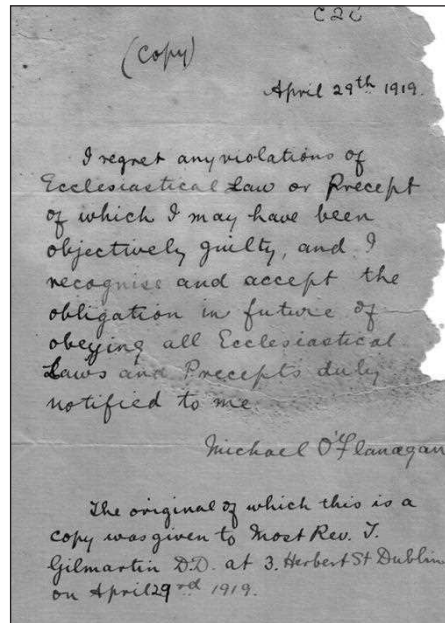 C2i
(Copy)
April 29th 1919.
I regret any violations of
Ecclesiastical Law or Precept
of which I may have been
objectively guilty, and I
recognise and accept the
obligation in future of
obeying all Ecclesiastical
Laws and Precepts duly
notified to me
Michael O'Flanagan
The original of which this is a
copy was given to Most Rev. T.
Gilmartin D.D. at 3. Herbert St Dublin
on April 29rd 1919.